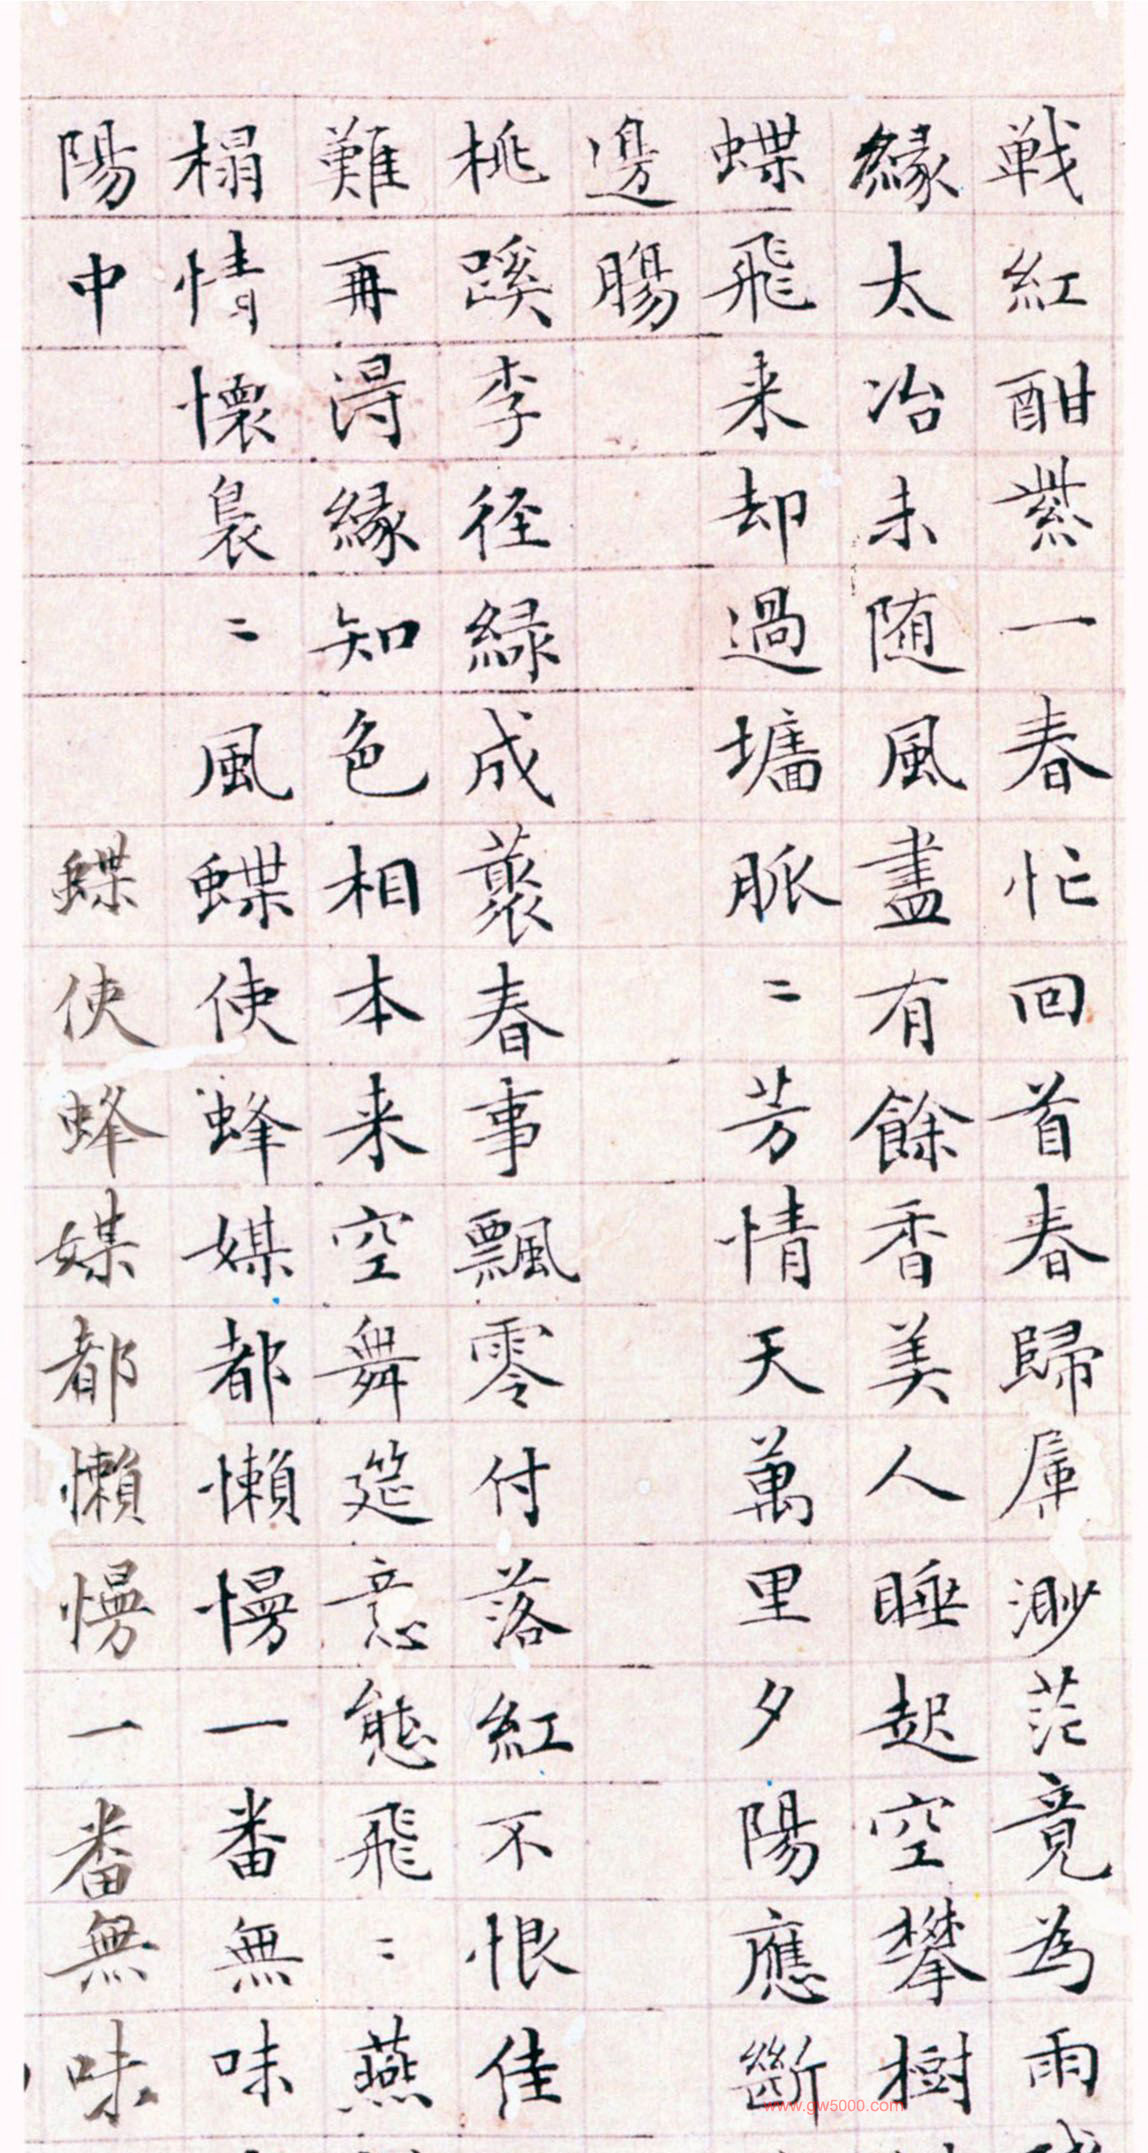 戦紅酣紫一春忙回首春歸屋渺茫竟為雨
緣太冶未随風盡有餘香美人睡起空攀樹
蝶飛来却過墻脈〻芳情天萬里夕陽應斷
邊腸
桃蹊李径綠成叢春事飄零付落紅不恨佳
難再淂緣知色相本来空舞筵意態飛〻燕
榻情懷裊〻風蝶使蜂媒都懶慢一番無味
陽中　蝶使蜂媒都懶慢一番無味
www.gw5000.com